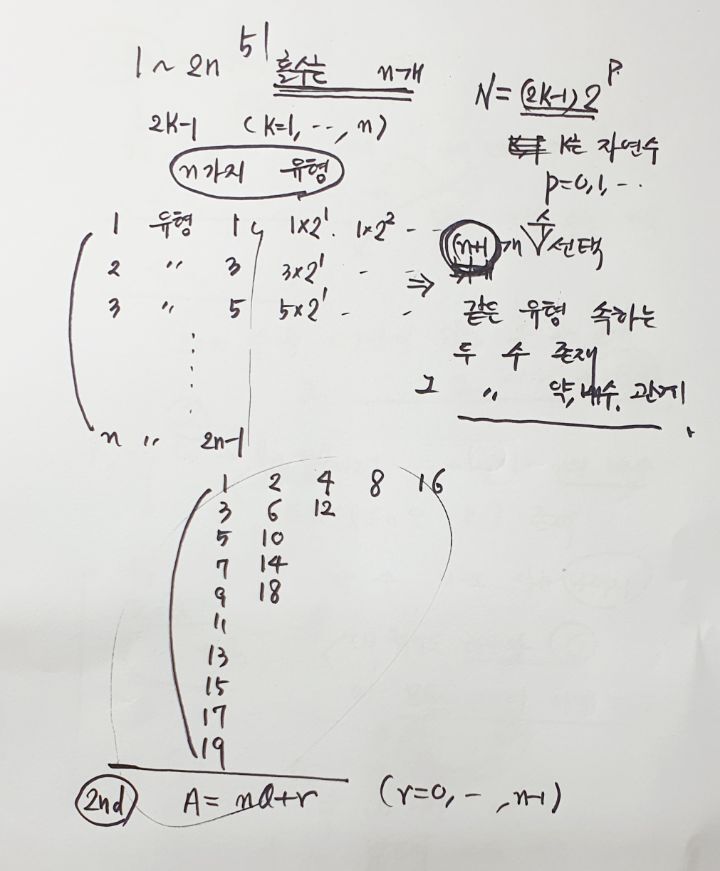 1 ~ 2n 의 홀수는 n개
2k-1 (k=1, ..., n)
n가지 유형
N = (2k-1) 2^p
k는 자연수
p=0,1,...
1 유형 1, 1×2^1. 1×2^2 - -
2 〃 3 3×2^1 - -
3 〃 5 5×2^1 - -
n 〃 2n-1
⇒ (n+1)개 수 선택
같은 유형 속하는
두 수 존재
그 〃 약,배수. 관계
1 2 4 8 16
3 6 12
5 10
7 14
9 18
11
13
15
17
19
2nd A = nQ+r (r=0, -, n-1)